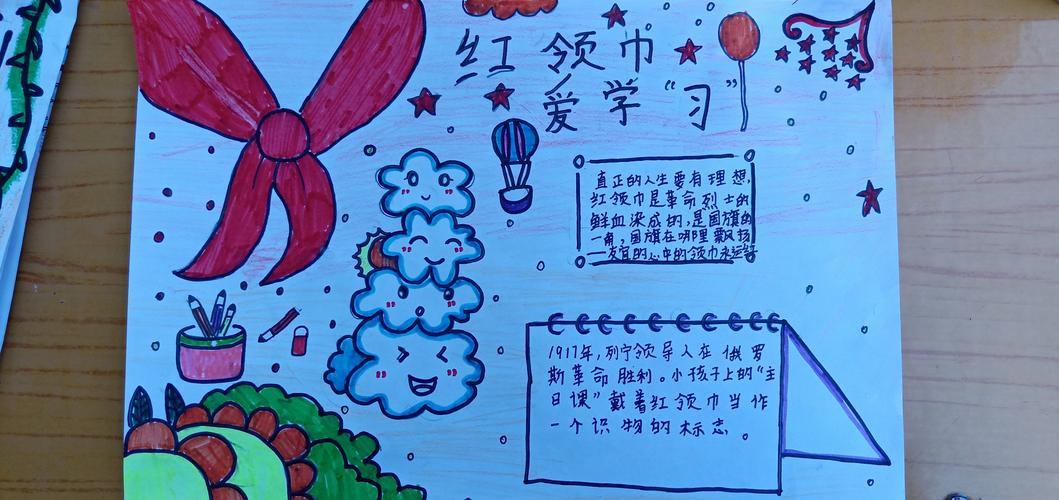 红领巾
爱学“习”
真正的人生要有理想,
红领巾是革命烈士的
鲜血染成的,是国旗的
一角,国旗在哪里飘扬
一友谊的心中的领巾永远
1917年,列宁领导人在俄罗
斯革命胜利。小孩子上的“主
日课”戴着红领巾当作
一个识物的标志。